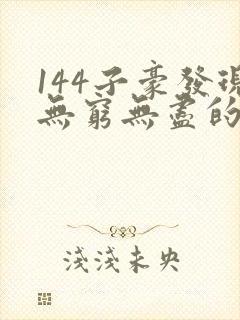 144子豪發現
無窮無盡的
淺淺未央